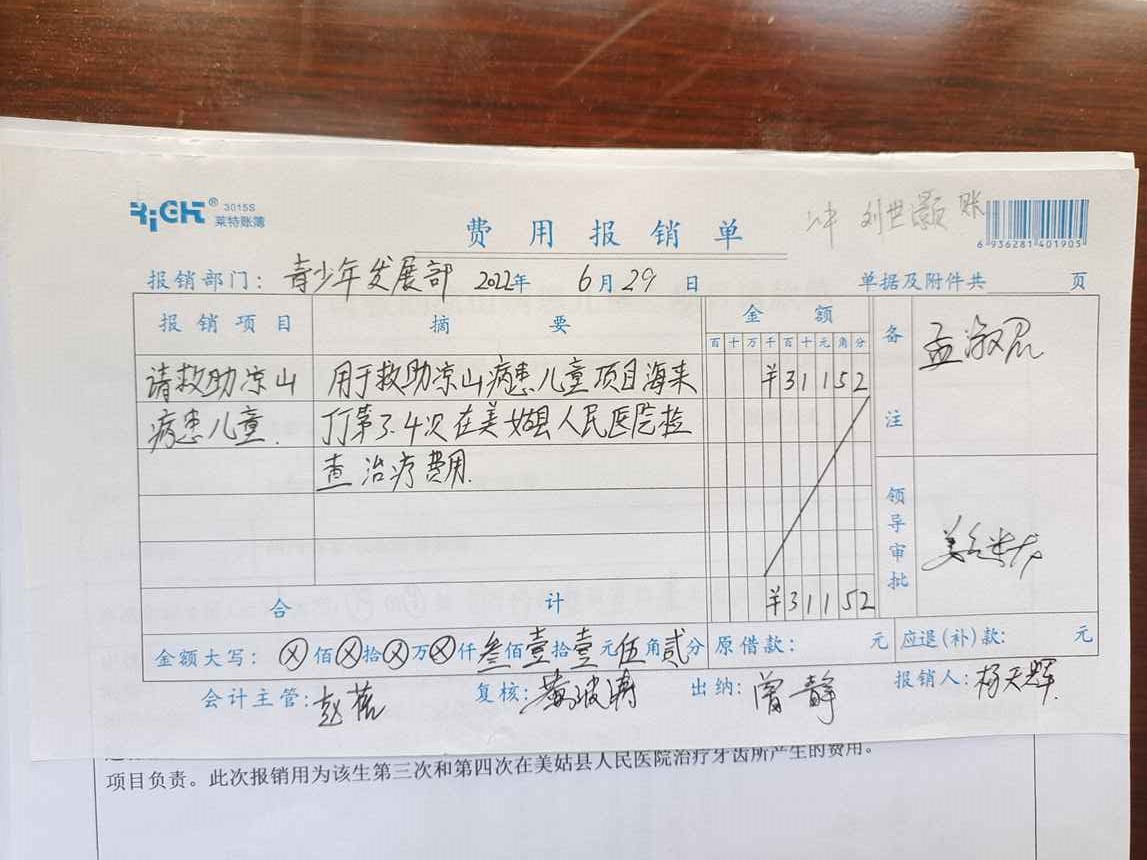 RiGHT® 3015S
莱特账簿
冲 刘世灏 账
6 936281 401905
费用报销单
报销部门: 青少年发展部 2022年 6月29日 单据及附件共 页
报销项目 摘要 金额 备注
百 十 万 千 百 十 元 角 分
请救助凉山 用于救助凉山病患儿童项目海来 ¥31152
病患儿童. 丁第3.4次在美姑县人民医院检
查治疗费用.
领导审批
合计 ¥31152
金额大写: ⊗佰⊗拾⊗万⊗仟叁佰壹拾壹元伍角贰分 原借款: 元 应退(补)款: 元
会计主管: 赵蓓 复核: 黄波涛 出纳: 曾静 报销人: 杨天辉
项目负责。此次报销用为该生第三次和第四次在美姑县人民医院治疗牙齿所产生的费用。